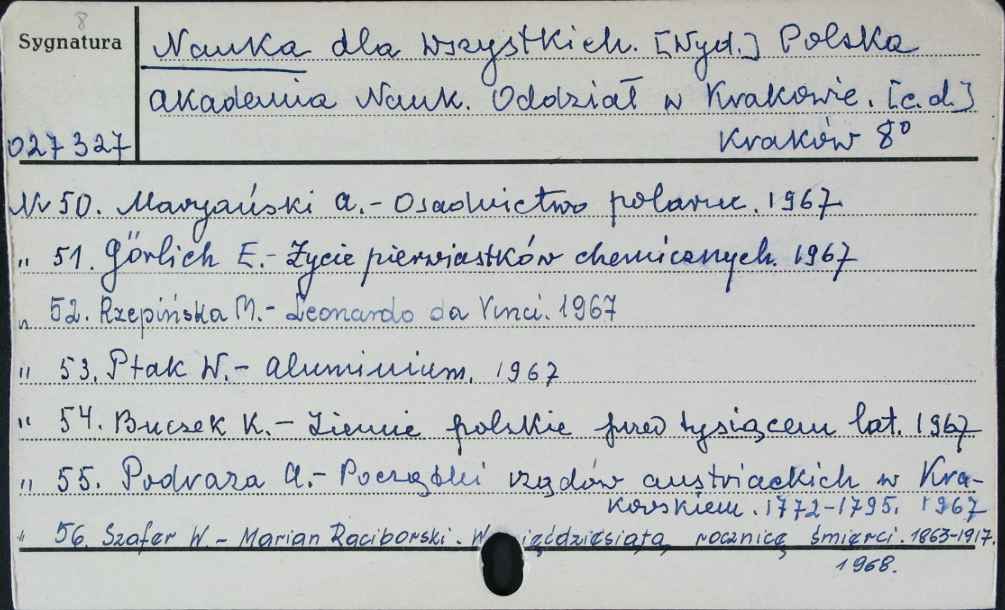 8
Sygnatura
Nauka dla wszystkich. [Wyd.] Polska
Akademia Nauk. Oddział w Krakowie. [c.d.]
027327
Kraków 8°
Nr 50. Maryański A. - Osadnictwo polarne. 1967
" 51. Görlich E. - Życie pierwiastków chemicznych. 1967
" 52. Rzepińska M. - Leonardo da Vinci. 1967
" 53. Ptak W. - Aluminium. 1967
" 54. Buczek K. - Ziemie polskie przed tysiącem lat. 1967
" 55. Podraza A. - Początki rządów austriackich w Kra-
kowskiem. 1772-1795. 1967
" 56. Szafer W. - Marian Raciborski. W pięćdziesiątą rocznicę śmierci. 1863-1917.
1968.